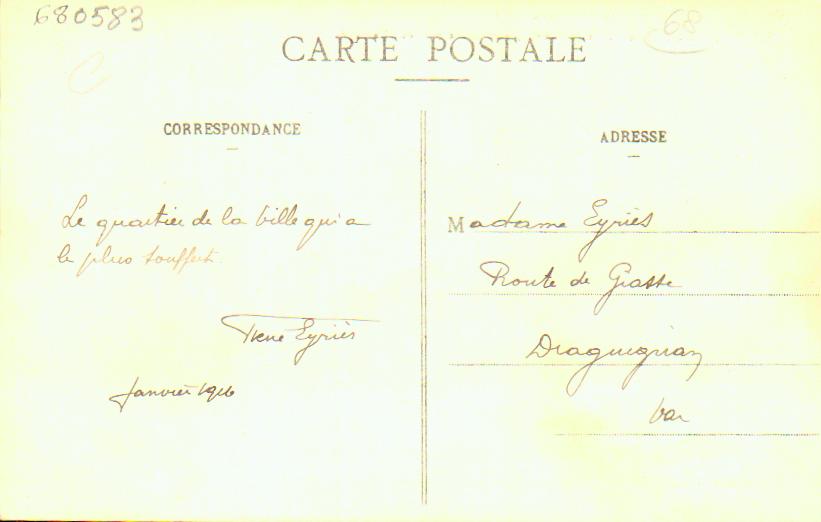 680583
68
C
CARTE POSTALE
CORRESPONDANCE
Le quartier de la Ville qui a
le plus souffert.
Eyriès
Janvier 1916
ADRESSE
Madame Eyriès
Route de Grasse
Draguignan
Var